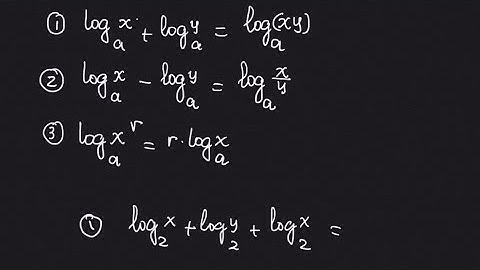 ① logₐ x + logₐ y = logₐ(xy)
② logₐ x − logₐ y = logₐ x/y
③ logₐ xʳ = r · logₐ x
① log₂ x + log₂ y + log₂ x =